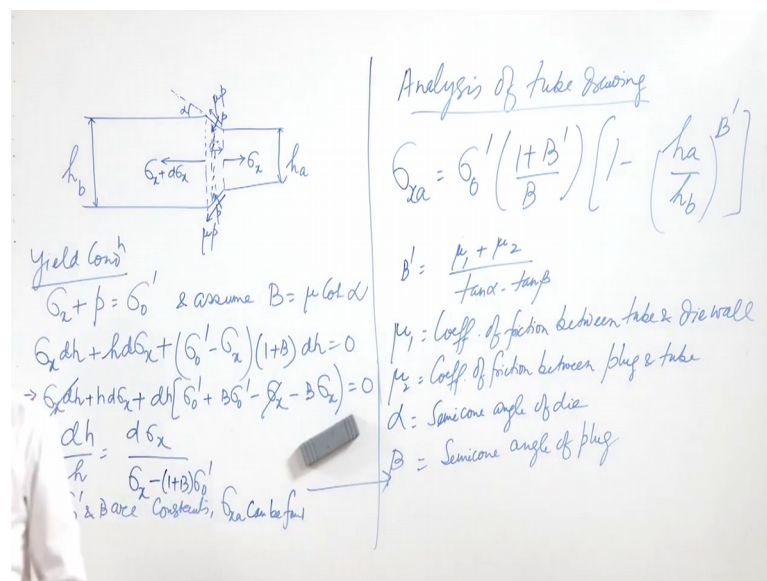 μp
α
p
h_b
σ_x+dσ_x
σ_x
h_a
p
μp
Yield Condⁿ
σ_x + p = σ_0' & assume B = μ Cot α
σ_x dh + h dσ_x + (σ_0' - σ_x)(1+B) dh = 0
→ σ_x dh + h dσ_x + dh[σ_0' + Bσ_0' - σ_x - Bσ_x) = 0
dh/h = dσ_x/(Bσ_x - (1+B)σ_0')
& B are Constants, σ_xa can be
Analysis of tube drawing
σ_xa = σ_0' ((1+B')/B) [1 - (h_a/h_b)^B']
B' = (μ_1 + μ_2)/(tanα - tanβ)
μ_1 = Coeff. of friction between tube & die wall
μ_2 = Coeff. of friction between plug & tube
α = Semicone angle of die
β = Semicone angle of plug